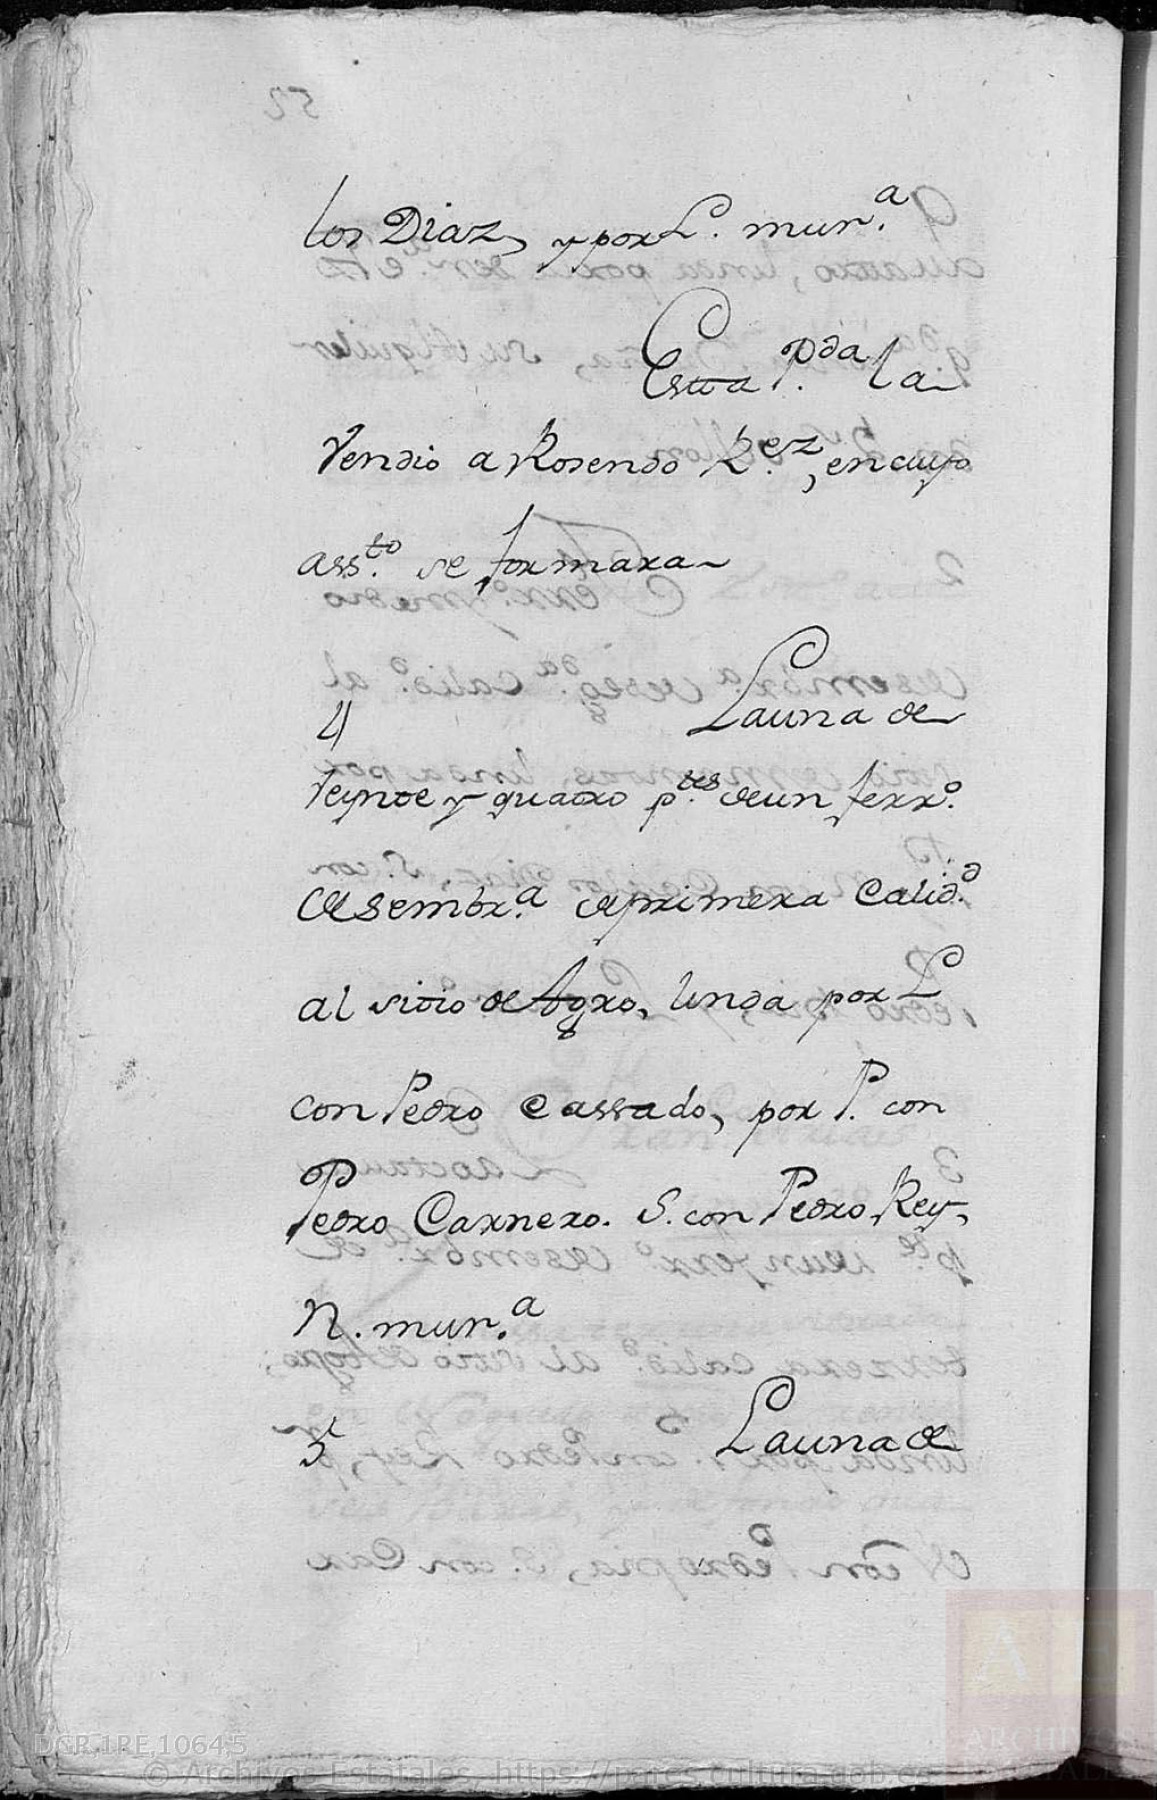 los Diaz, y por L. mur.a
Esta p.da la
Vendio a Rosendo R.ez, en cuyo
ass.to se formara
4 La una de
Veynte y quatro p.tes de un ferr.o
de sembr.a de primera Calid.d
al sitio de Agro, linda por L
con Pedro Cassado, por P. con
Pedro Carnero. S. con Pedro Rey,
N. mur.a
5 La una de
DGR,1RE,1064,5
© Archivos Estatales, https://pares.cultura.gob.es
AE
ARCHIVOS